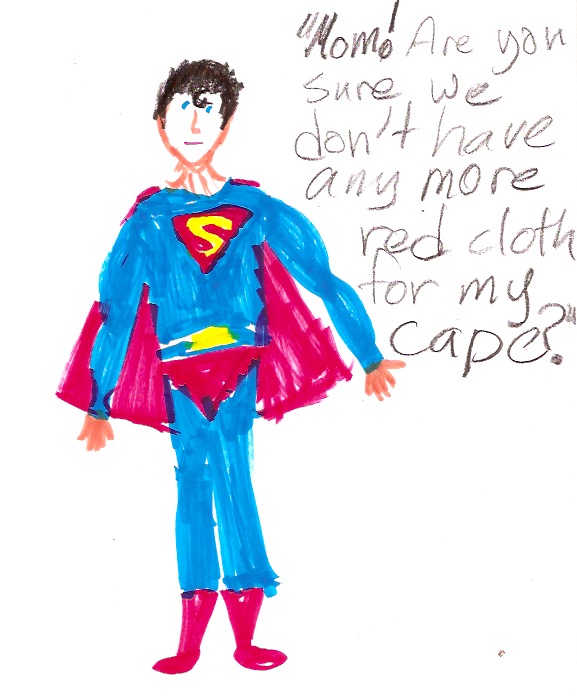 "Mom! Are you
sure we
don't have
any more
red cloth
for my
cape?"
S